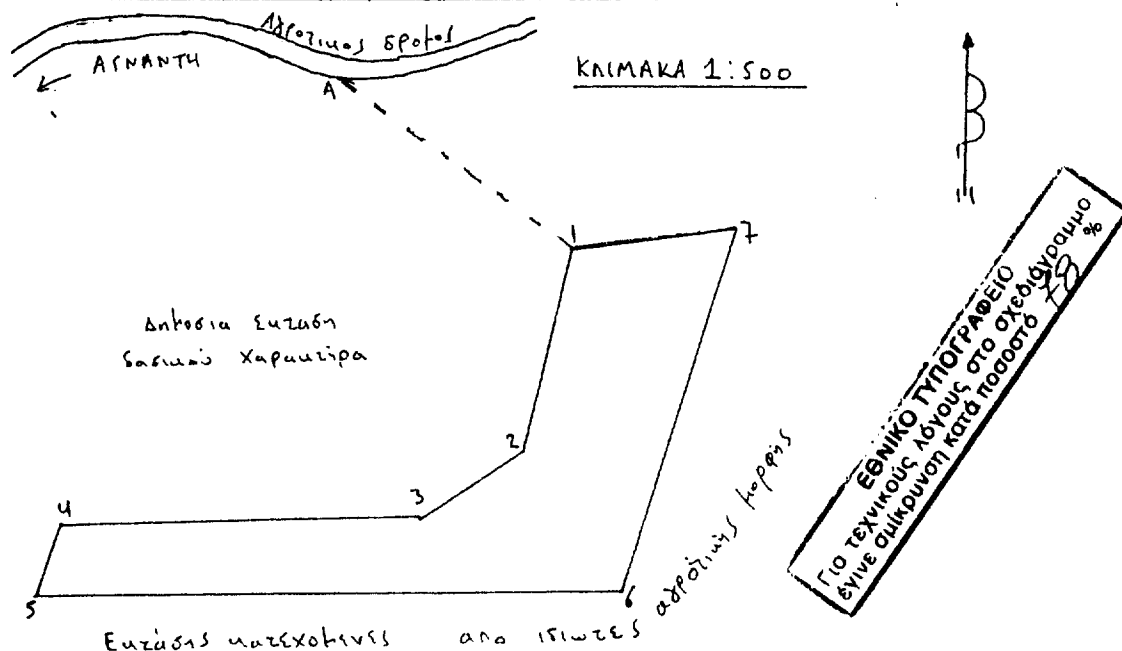 Αγροτικος δρομος
ΑΓΝΑΝΤΗ
Α
ΚΛΙΜΑΚΑ 1:500
1
7
Δημοσια Εκταση
δασικού χαρακτήρα
2
3
4
5
6
Εκτάσης κατεχομενες απο ιδιωτες αγρότικής μορφής
ΕΘΝΙΚΟ ΤΥΠΟΓΡΑΦΕΙΟ
Για τεχνικούς λόγους στο σχεδιάγραμμο
έγινε σμίκρυνση κατά ποσοστό 78 %